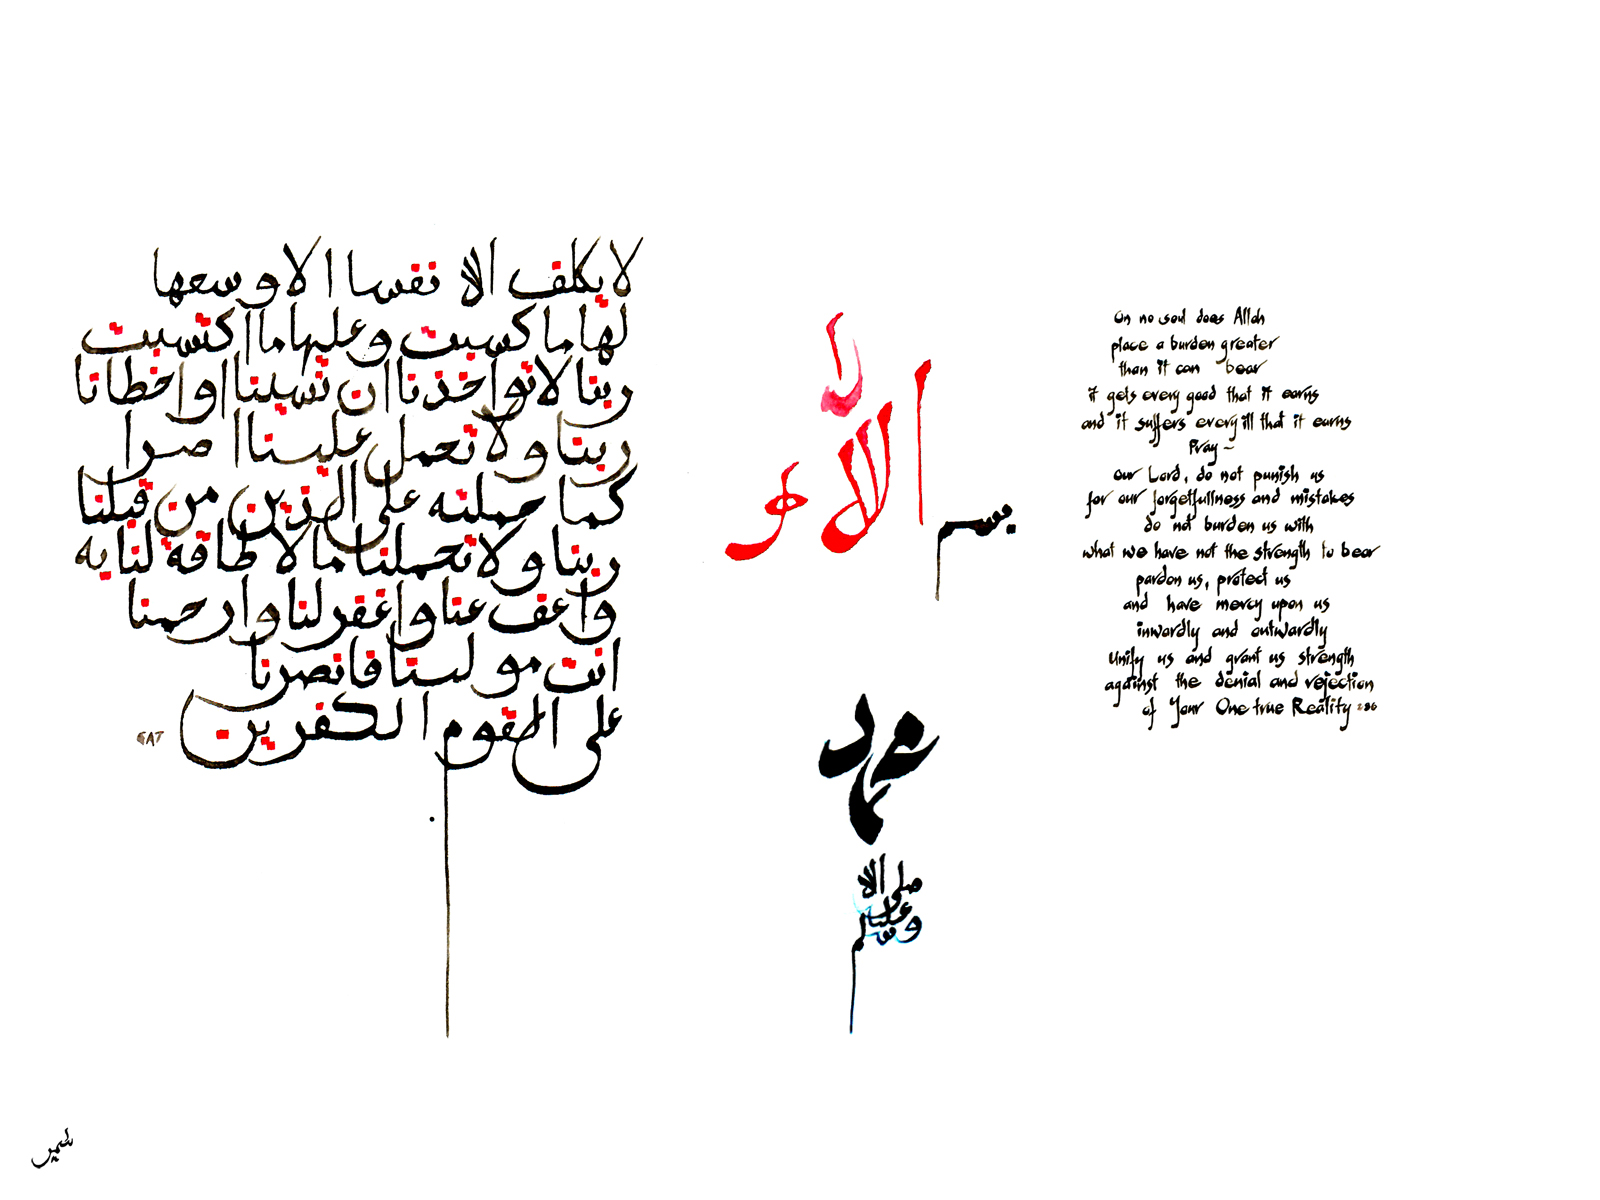 لا يكلف الله نفسا الا وسعها
لها ما كسبت و عليها ما اكتسبت
ربنا لا تواخذنا ان نسينا او اخطانا
ربنا و لا تحمل علينا اصرا
كما حملته على الذين من قبلنا
ربنا و لا تحملنا ما لا طاقة لنا به
واعف عنا واغفر لنا وارحمنا
انت مولينا فانصرنا
على القوم الكفرين
بسم الله
محمد
صلى الله
عليه
و سلم
On no soul does Allah
place a burden greater
than it can bear
it gets every good that it earns
and it suffers every ill that it earns
Pray ~
Our Lord, do not punish us
for our forgetfullness and mistakes
do not burden us with
what we have not the strength to bear
pardon us, protect us
and have mercy upon us
inwardly and outwardly
Unify us and grant us strength
against the denial and rejection
of Your One true Reality 286